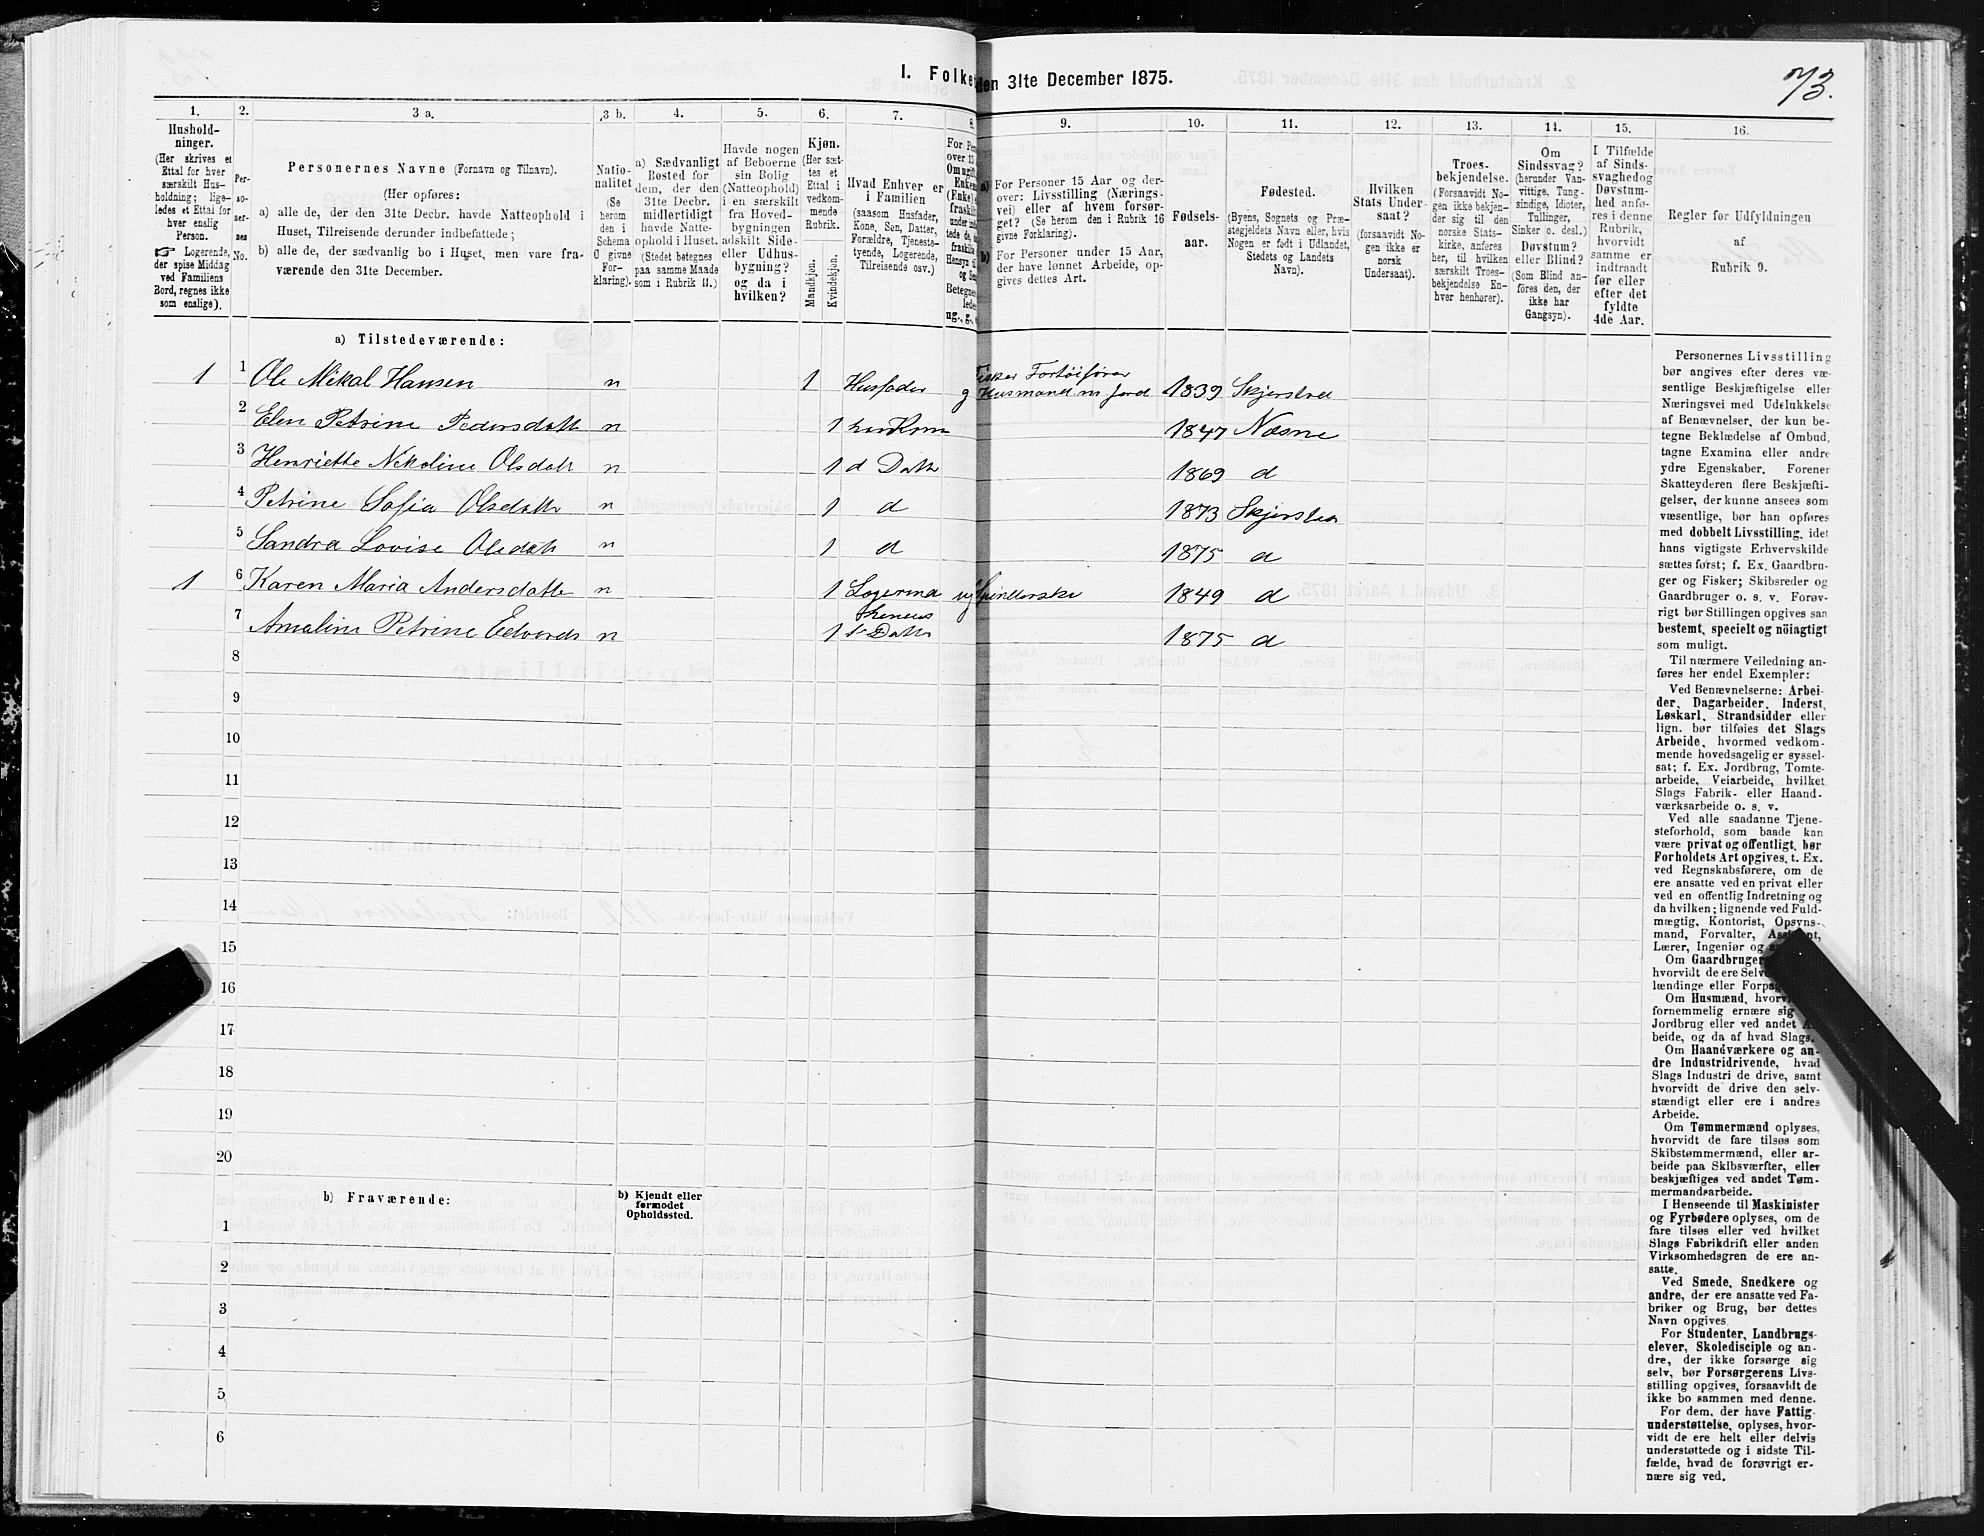 73.
I. Folke den 31te December 1875.
1. 2. 3 a. 3 b. 4. 5. 6. 7. 8. 9. 10. 11. 12. 13. 14. 15. 16.
Hushold-
ninger.
(Her skrives et
Ettal for hver
særskilt Hus-
holdning; lige-
ledes et Ettal for
hver enslig
Person.
☞ Logerende,
der spise Middag
ved Familiens
Bord, regnes ikke
som enslige).
Per-
so-
ner-
nes
No.
Personernes Navne (Fornavn og Tilnavn).
(Her opføres:
a) alle de, der den 31te Decbr. havde Natteophold i
Huset, Tilreisende derunder indbefattede;
b) alle de, der sædvanlig bo i Huset, men vare fra-
værende den 31te December.
Natio-
nalitet
(Se
herom
den i
Schema
O givne
For-
klaring).
a) Sædvanligt
Bosted for
dem, der den
31te Decbr.
midlertidigt
havde Natte-
ophold i Huset.
(Stedet betegnes
paa samme Maade
som i Rubrik 11.)
Havde nogen
af Beboerne
sin Bolig
(Natteophold)
i en særskilt
fra Hoved-
bygningen
adskilt Side-
eller Udhus-
bygning?
og da i
hvilken?
Kjøn.
(Her sæt-
tes et
Ettal i
vedkom-
mende
Rubrik.
Mandkjøn.
Kvindekjøn.
Hvad Enhver er
i Familien
(saasom Husfader,
Kone, Søn, Datter,
Forældre, Tjeneste-
tyende, Logerende,
Tilreisende osv.)
For Per
over 15
Om ugift,
Enken
(Enke)
fraskil
under indb
fraskilte
Hensyn
og Sen
Betegnes
lede
ug., g.,
a) For Personer 15 Aar og der-
over: Livsstilling (Nærings-
vei) eller af hvem forsør-
get? (Se herom den i Rubrik 16
givne Forklaring).
b) For Personer under 15 Aar,
der have lønnet Arbeide, op-
gives dettes Art.
Fødsels-
aar.
Fødested.
(Byens, Sognets og Præ-
stegjeldets Navn eller, hvis
Nogen er født i Udlandet,
Stedets og Landets
Navn).
Hvilken
Stats Under-
saat?
(forsaavidt No-
gen ikke er
norsk
Undersaat).
Troes-
bekjendelse.
(Forsaavidt No-
gen ikke bekjen-
der sig til den
norske Stats-
kirke, anføres
her, til hvilken
særskilt Troes-
bekjendelse En-
hver henhører).
Om
Sindssvag?
(herunder Van-
vittige, Tung-
sindige, Idioter,
Tullinger,
Sinker o. desl.)
Døvstum?
eller Blind?
(Som Blind an-
føres den, der
ikke har
Gangsyn).
I Tilfælde
af Sinds-
svaghed og
Døvstum-
hed anfø-
res i denne
Rubrik,
hvorvidt
samme er
indtraadt
før eller
efter det
fyldte
4de Aar.
Regler for Udfyldningen
af
Rubrik 9.
a) Tilstedeværende:
1 1 Ole Mikal Hansen n 1 Husfader g Fisker Fortøifører
Husmand m jord 1839 Skjerstad
2 Elen Petrine Pedersdatt n 1 hans Kone 1847 Næsne
3 Henriette Nikoline Olsdatt n 1 d Dattr 1869 d
4 Petrine Sofia Olsdatter n 1 d 1873 Skjerstad
5 Sandra Lovise Olsdatt n 1 d 1875 d
1 6 Karen Maria Andersdatter n 1 Logerende ug Spinderske 1849 d
7 Amaline Petrine Edvards n 1 hennes
Datter 1875 d
8
9
10
11
12
13
14
15
16
17
18
19
20
b) Fraværende:
b) Kjendt eller
formodet
Opholdssted.
1
2
3
4
5
6
Personernes Livsstilling
bør angives efter deres væ-
sentlige Beskjæftigelse eller
Næringsvei med Udelukkelse
af Benævnelser, der kun be-
tegne Beklædelse af Ombud,
tagne Examina eller andre
ydre Egenskaber. Forener
Skatteyderen flere Beskjæfti-
gelser, der kunne ansees som
væsentlige, bør han opføres
med dobbelt Livsstilling, idet
hans vigtigste Erhvervskilde
sættes først; f. Ex. Gaardbru-
ger og Fisker; Skibsreder og
Gaardbruger o. s. v. Forøv-
rigt bør Stillingen opgives saa
bestemt, specielt og nöiagtigt
som muligt.
Til nærmere Veiledning an-
føres her endel Exempler:
Ved Benævnelserne: Arbei-
der, Dagarbeider, Inderst,
Løskarl, Strandsidder eller
lign. bør tilføies det Slags
Arbeide, hvormed vedkom-
mende hovedsagelig er syssel-
sat; f. Ex. Jordbrug, Tomte-
arbeide, Veiarbeide, hvilket
Slags Fabrik- eller Haand-
værksarbeide o. s. v.
Ved alle saadanne Tjene-
steforhold, som baade kan
være privat og offentligt, bør
Forholdets Art opgives, f. Ex.
ved Regnskabsførere, om de
ere ansatte ved en privat eller
ved en offentlig Indretning og
da hvilken; lignende ved Fuld-
mægtig, Kontorist, Opsyns-
mand, Forvalter,
Lærer, Ingeniør og
Om Gaardbruger
hvorvidt de ere Selv
lændinge eller
Om Husmænd,
fornemmelig ernære sig
Jordbrug eller ved andet
beide, og da af hvad Slags.
Om Haandværkere og an-
dre Industridrivende, hvad
Slags Industri de drive, samt
hvorvidt de drive den selv-
stændigt eller ere i andres
Arbeide.
Om Tømmermænd oplyses,
hvorvidt de fare tilsøs som
Skibstømmermænd, eller ar-
beide paa Skibsværfter, eller
beskjæftiges ved andet Tøm-
mermandsarbeide.
I Henseende til Maskinister
og Fyrbødere oplyses, om de
fare tilsøs eller ved hvilket
Slags Fabrikdrift eller anden
Virksomhedsgren de ere an-
satte.
Ved Smede, Snedkere og
andre, der ere ansatte ved Fa-
briker og Brug, bør dettes
Navn opgives.
For Studenter, Landbrugs-
elever, Skoledisciple og an-
dre, der ikke forsørge sig
selv, bør Forsørgerens Livs-
stilling opgives, forsaavidt de
ikke bo sammen med denne.
For dem, der have Fattig-
understøttelse, oplyses, hvor-
vidt de ere helt eller delvis
understøttede og i sidste Til-
fælde, hvad de forøvrigt er-
nære sig ved.